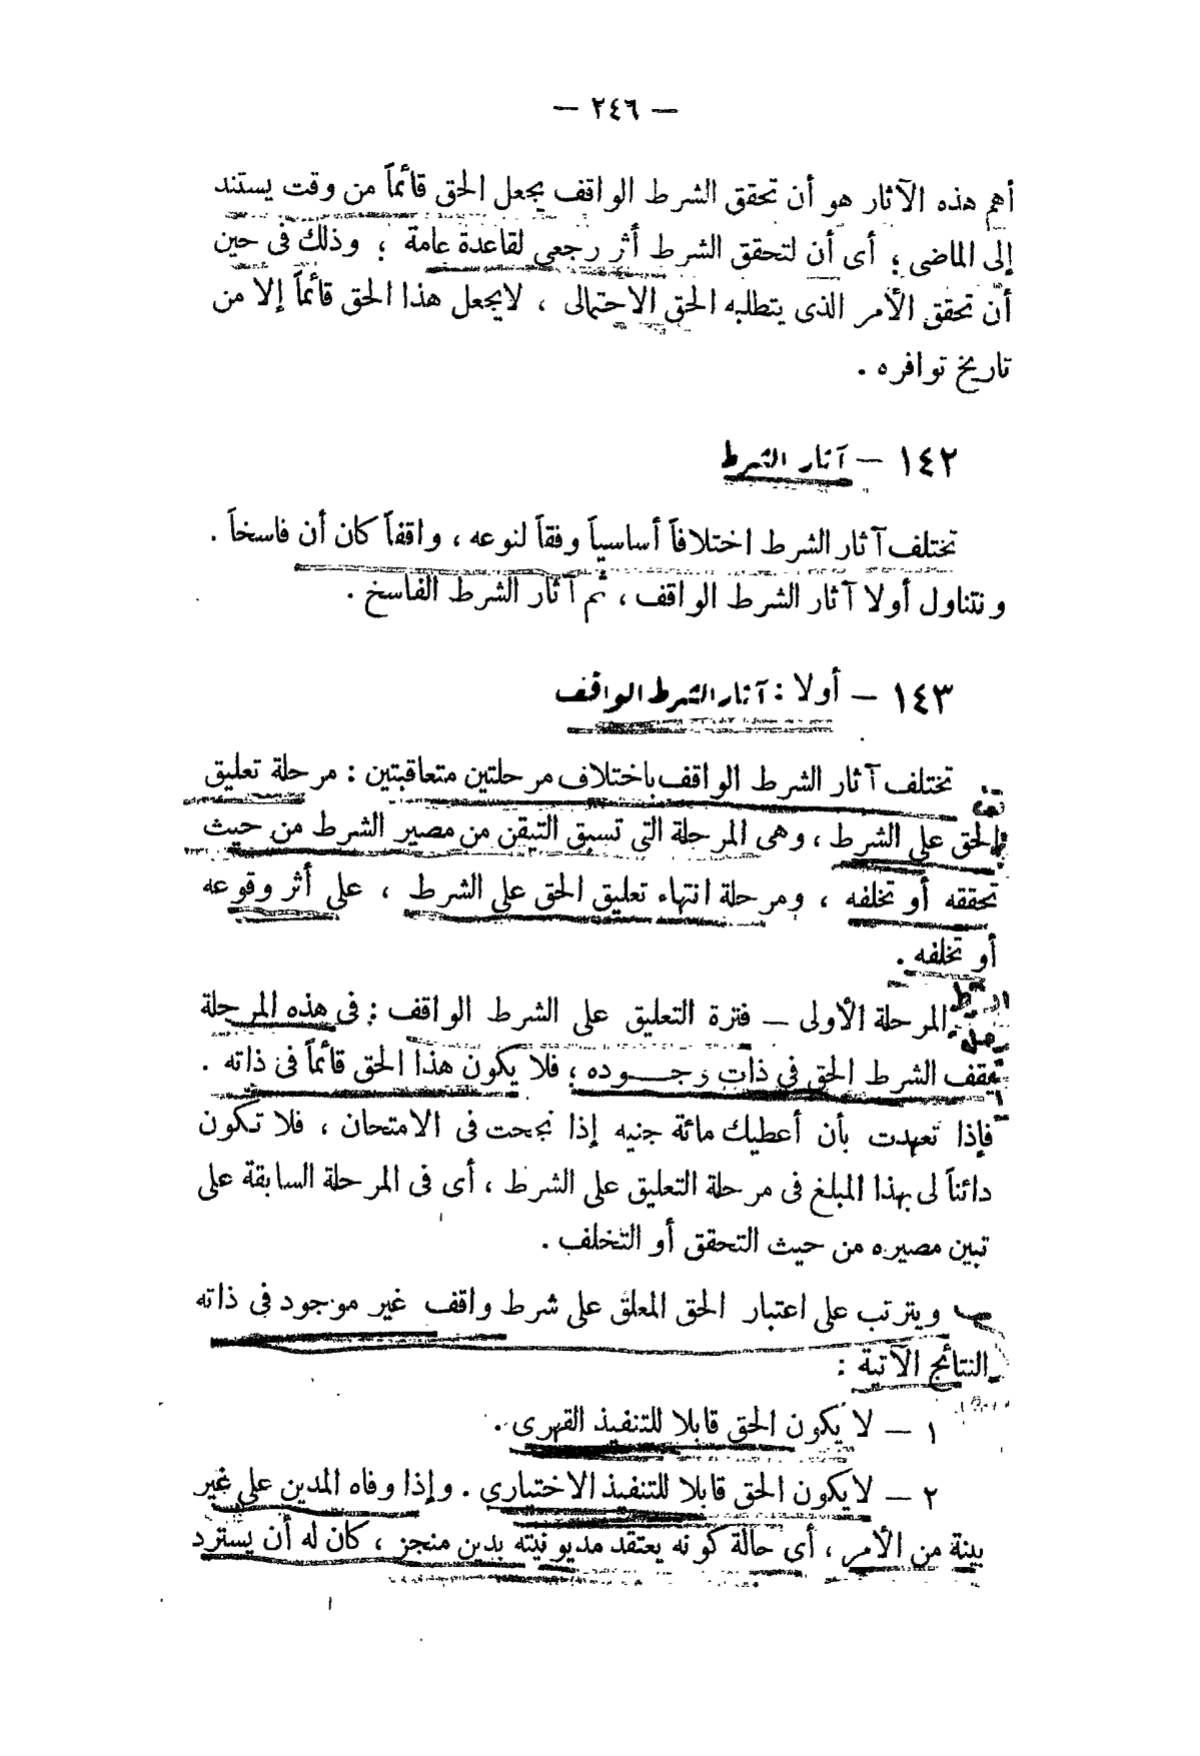 — ٢٤٦ —
أهم هذه الآثار هو أن تحقق الشرط الواقف يجعل الحق قائماً من وقت يستند
إلى الماضى ؛ أى أن لتحقق الشرط أثر رجعى لقاعدة عامة ؛ وذلك فى حين
أن تحقق الأمر الذى يتطلبه الحق الاحتمالى ، لايجعل هذا الحق قائماً إلا من
تاريخ توافره .
١٤٢ — آثار الشرط
تختلف آثار الشرط اختلافاً أساسياً وفقاً لنوعه ، واقفاً كان أن فاسخاً .
ونتناول أولا آثار الشرط الواقف ، ثم آثار الشرط الفاسخ .
١٤٣ — أولا : آثار الشرط الواقف
تختلف آثار الشرط الواقف باختلاف مرحلتين متعاقبتين : مرحلة تعليق
الحق على الشرط ، وهى المرحلة التى تسبق التيقن من مصير الشرط من حيث
تحققه أو تخلفه ، ومرحلة انتهاء تعليق الحق على الشرط ، على أثر وقوعه
أو تخلفه .
المرحلة الأولى — فترة التعليق على الشرط الواقف : فى هذه المرحلة
يقف الشرط الحق فى ذات وجـــوده ؛ فلا يكون هذا الحق قائماً فى ذاته .
فإذا تعهدت بأن أعطيك مائة جنيه إذا نجحت فى الامتحان ، فلا تكون
دائناً لى بهذا المبلغ فى مرحلة التعليق على الشرط ، أى فى المرحلة السابقة على
تبين مصيره من حيث التحقق أو التخلف .
ويترتب على اعتبار الحق المعلق على شرط واقف غير موجود فى ذاته
النتائج الآتية :
١ — لا يكون الحق قابلا للتنفيذ القهرى .
٢ — لايكون الحق قابلا للتنفيذ الاختيارى . وإذا وفاه المدين على غير
بينة من الأمر ، أى حالة كونه يعتقد مديونيته بدين منجز ، كان له أن يسترد